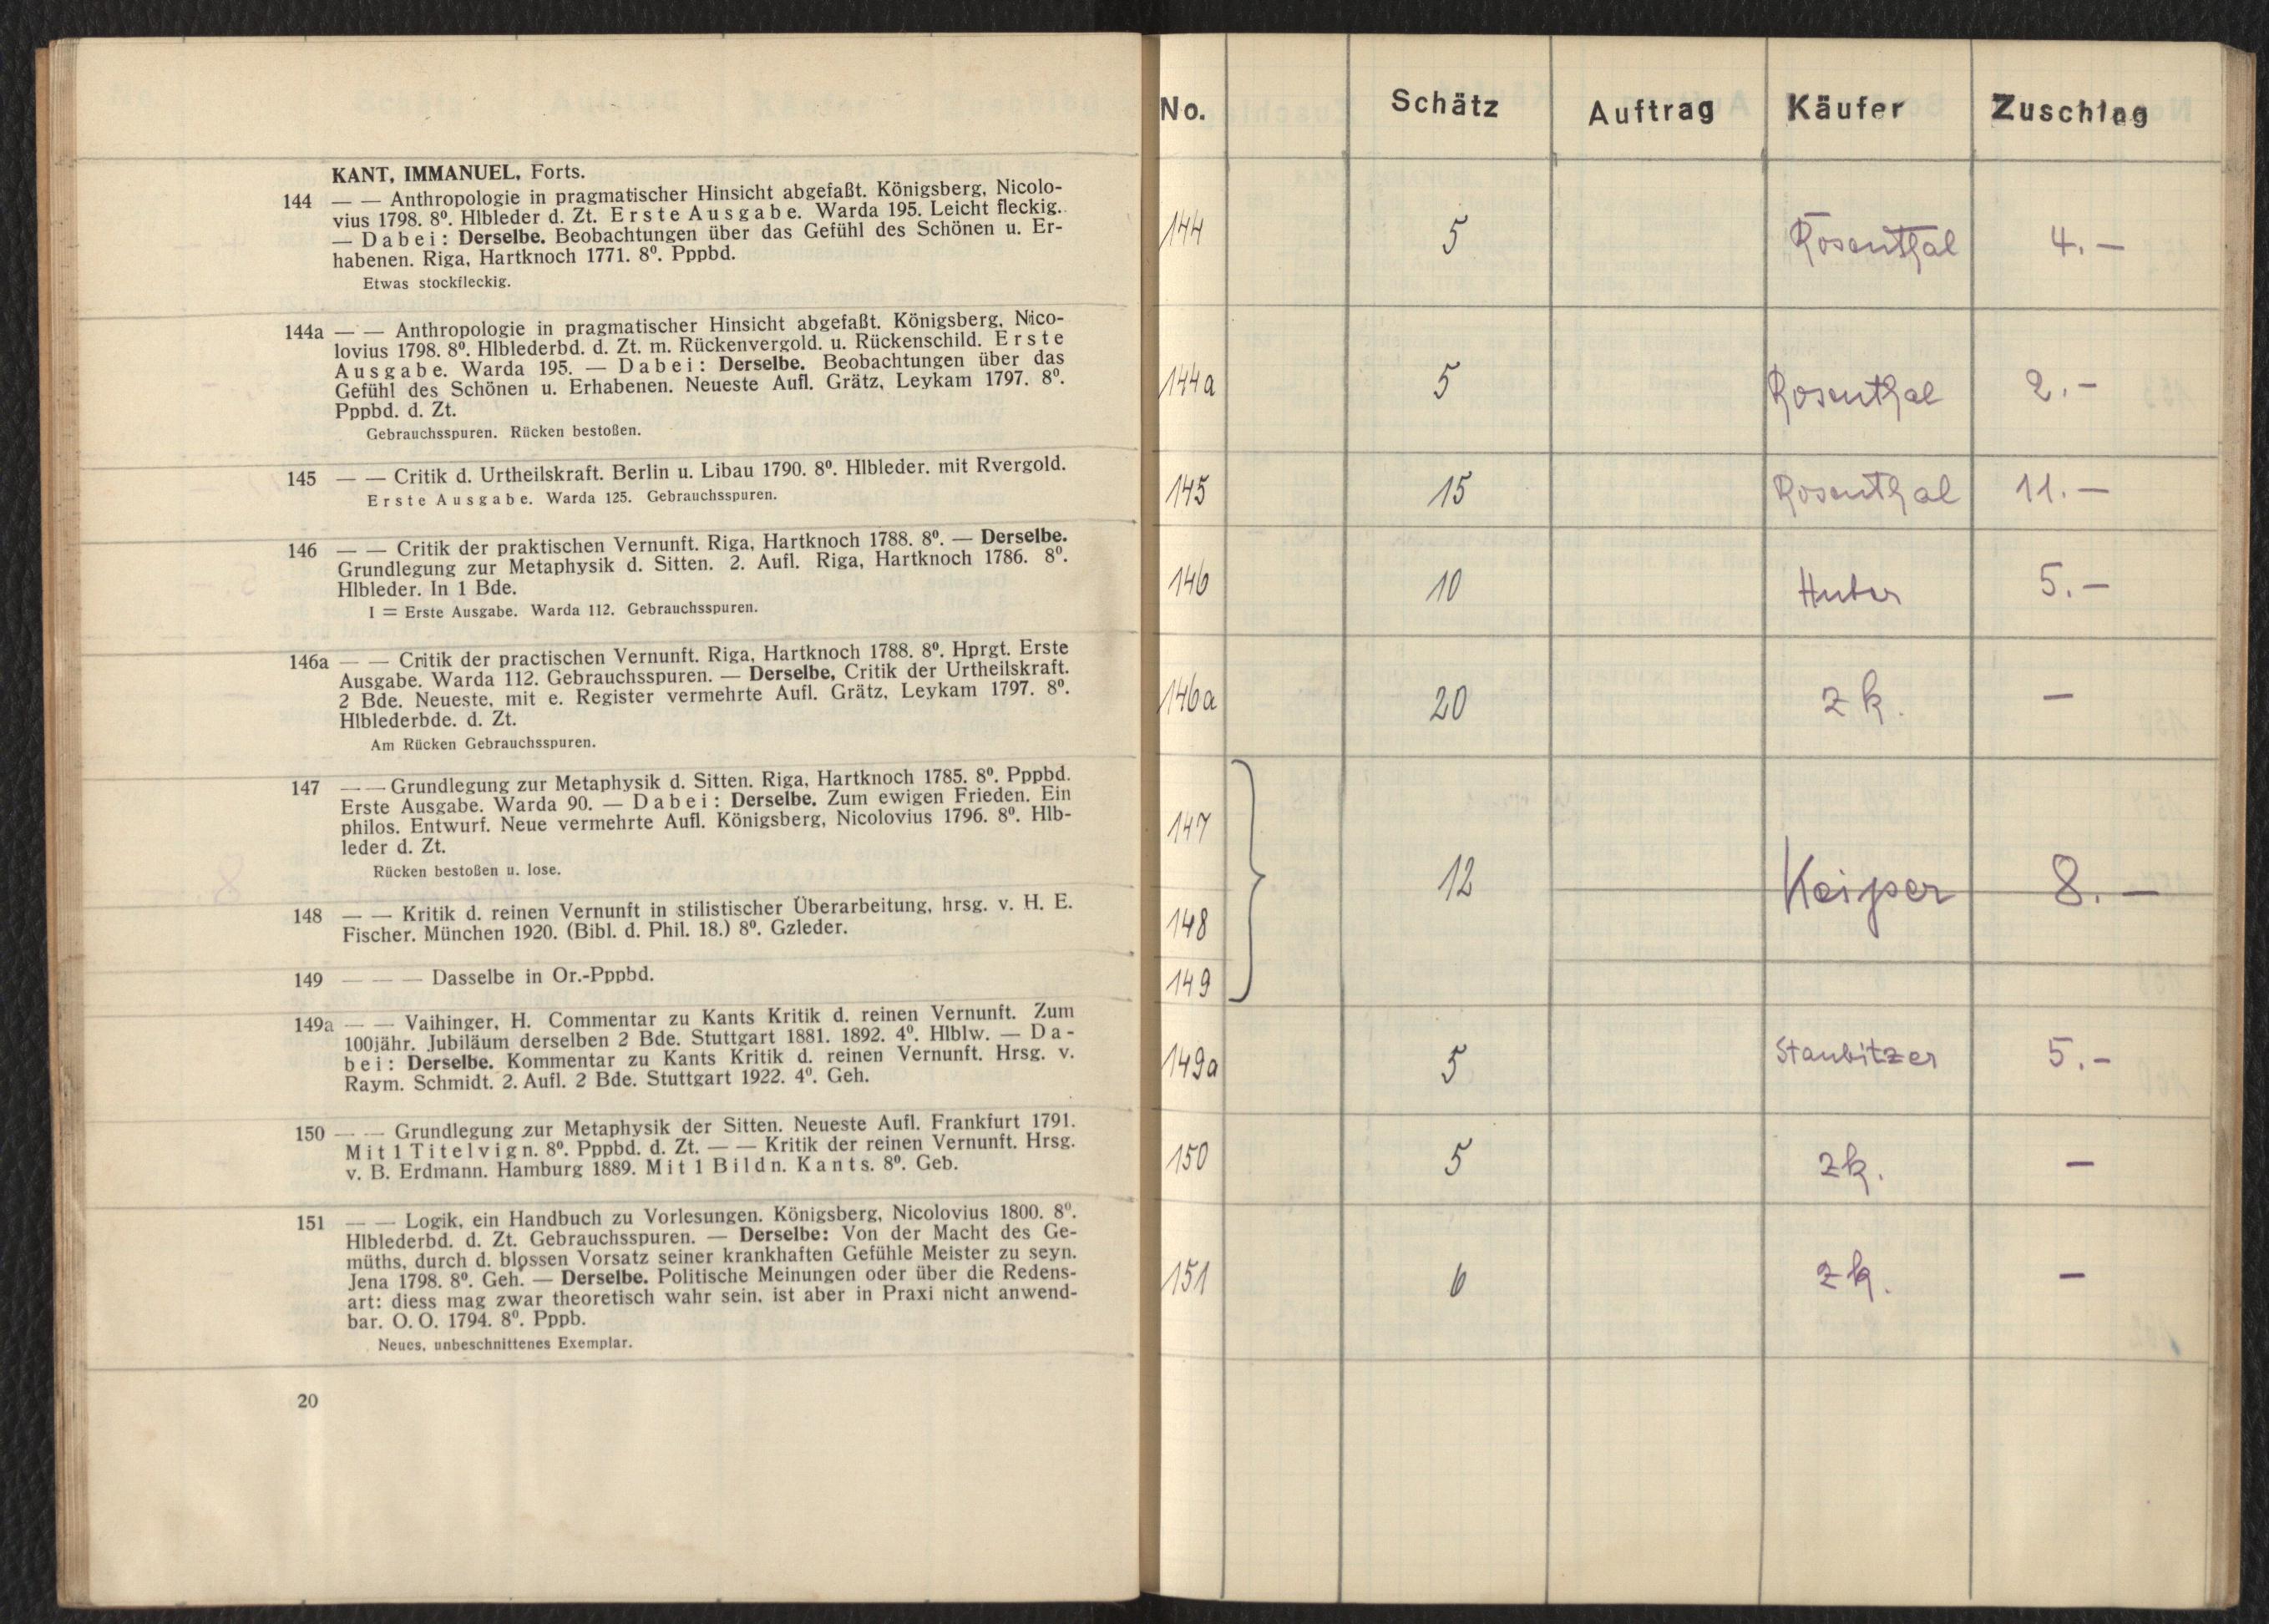 KANT, IMMANUEL, Forts.
144 — — Anthropologie in pragmatischer Hinsicht abgefaßt. Königsberg, Nicolo-
vius 1798. 8⁰. Hlbleder d. Zt. Erste Ausgabe. Warda 195. Leicht fleckig.
— Dabei: Derselbe. Beobachtungen über das Gefühl des Schönen u. Er-
habenen. Riga, Hartknoch 1771. 8⁰. Pppbd.
Etwas stockfleckig.
144a — — Anthropologie in pragmatischer Hinsicht abgefaßt. Königsberg, Nico-
lovius 1798. 8⁰. Hlblederbd. d. Zt. m. Rückenvergold. u. Rückenschild. Erste
Ausgabe. Warda 195. — Dabei: Derselbe. Beobachtungen über das
Gefühl des Schönen u. Erhabenen. Neueste Aufl. Grätz, Leykam 1797. 8⁰.
Pppbd. d. Zt.
Gebrauchsspuren. Rücken bestoßen.
145 — — Critik d. Urtheilskraft. Berlin u. Libau 1790. 8⁰. Hlbleder. mit Rvergold.
Erste Ausgabe. Warda 125. Gebrauchsspuren.
146 — — Critik der praktischen Vernunft. Riga, Hartknoch 1788. 8⁰. — Derselbe.
Grundlegung zur Metaphysik d. Sitten. 2. Aufl. Riga, Hartknoch 1786. 8⁰.
Hlbleder. In 1 Bde.
I = Erste Ausgabe. Warda 112. Gebrauchsspuren.
146a — — Critik der practischen Vernunft. Riga, Hartknoch 1788. 8⁰. Hprgt. Erste
Ausgabe. Warda 112. Gebrauchsspuren. — Derselbe, Critik der Urtheilskraft.
2 Bde. Neueste, mit e. Register vermehrte Aufl. Grätz, Leykam 1797. 8⁰.
Hlblederbde. d. Zt.
Am Rücken Gebrauchsspuren.
147 — — Grundlegung zur Metaphysik d. Sitten. Riga, Hartknoch 1785. 8⁰. Pppbd.
Erste Ausgabe. Warda 90. — Dabei: Derselbe. Zum ewigen Frieden. Ein
philos. Entwurf. Neue vermehrte Aufl. Königsberg, Nicolovius 1796. 8⁰. Hlb-
leder d. Zt.
Rücken bestoßen u. lose.
148 — — Kritik d. reinen Vernunft in stilistischer Überarbeitung, hrsg. v. H. E.
Fischer. München 1920. (Bibl. d. Phil. 18.) 8⁰. Gzleder.
149 — — — Dasselbe in Or.-Pppbd.
149a — — Vaihinger, H. Commentar zu Kants Kritik d. reinen Vernunft. Zum
100jähr. Jubiläum derselben 2 Bde. Stuttgart 1881. 1892. 4⁰. Hlblw. — Da-
bei: Derselbe. Kommentar zu Kants Kritik d. reinen Vernunft. Hrsg. v.
Raym. Schmidt. 2. Aufl. 2 Bde. Stuttgart 1922. 4⁰. Geh.
150 — — Grundlegung zur Metaphysik der Sitten. Neueste Aufl. Frankfurt 1791.
Mit 1 Titelvign. 8⁰. Pppbd. d. Zt. — — Kritik der reinen Vernunft. Hrsg.
v. B. Erdmann. Hamburg 1889. Mit 1 Bildn. Kants. 8⁰. Geb.
151 — — Logik, ein Handbuch zu Vorlesungen. Königsberg, Nicolovius 1800. 8⁰.
Hlblederbd. d. Zt. Gebrauchsspuren. — Derselbe: Von der Macht des Ge-
müths, durch d. blossen Vorsatz seiner krankhaften Gefühle Meister zu seyn.
Jena 1798. 8⁰. Geh. — Derselbe. Politische Meinungen oder über die Redens-
art: diess mag zwar theoretisch wahr sein, ist aber in Praxi nicht anwend-
bar. O. O. 1794. 8⁰. Pppb.
Neues, unbeschnittenes Exemplar.
20
No. Schätz Auftrag Käufer Zuschlag
144 5 Rosenthal 4.—
144a 5 Rosenthal 2.—
145 15 Rosenthal 11.—
146 10 Huber 5.—
146a 20 zk. —
147
12 Keiper 8.—
148
149
149a 5 Staubitzer 5.—
150 5 zk. —
151 6 zk. —